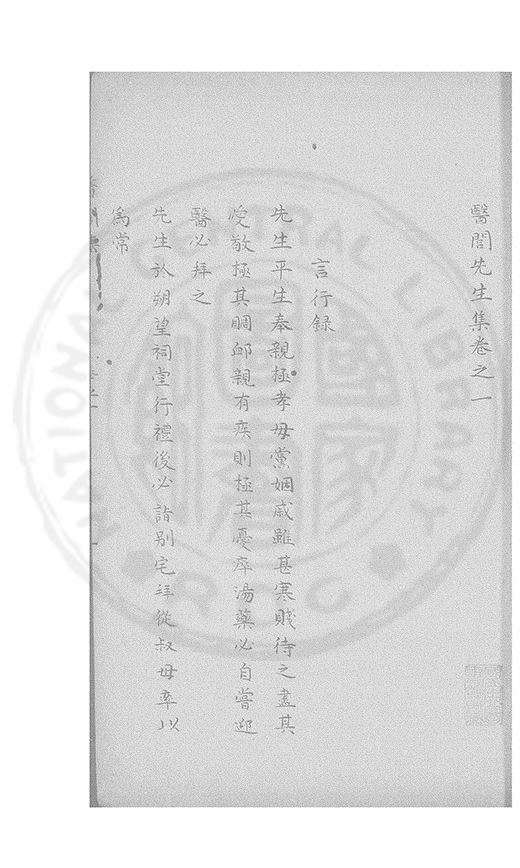 醫閭先生集卷之一
言行録
先生平生奉親極孝母黨姻戚雖甚寒賤待之盡其
愛敬極其賙䘏親有疾則極其憂瘁湯藥必自嘗迎
醫必拜之
先生於朔望祠堂行禮後必詣别宅拜從叔母率以
爲常
國家
NATIONAL CENTRAL LIBRARY